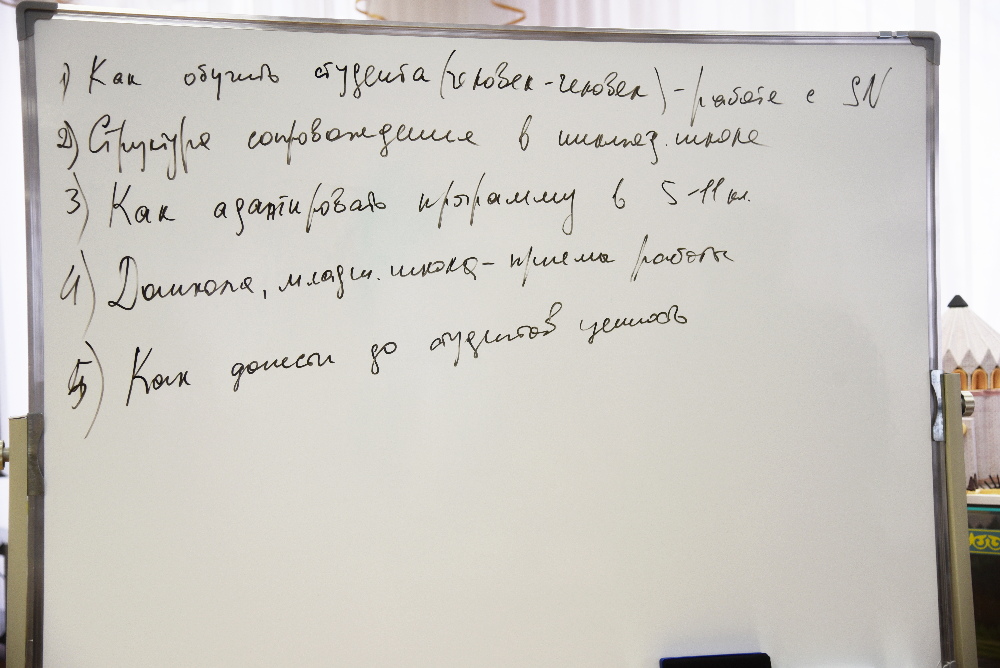 1) Как обучить студента (человек-человек) - работе с SN
2) Структура сопровождения в школе
3) Как адаптировать программу в 5-11 кл.
4) Дошкола, младш. школа - приемы работы
5) Как донести до студентов ценность